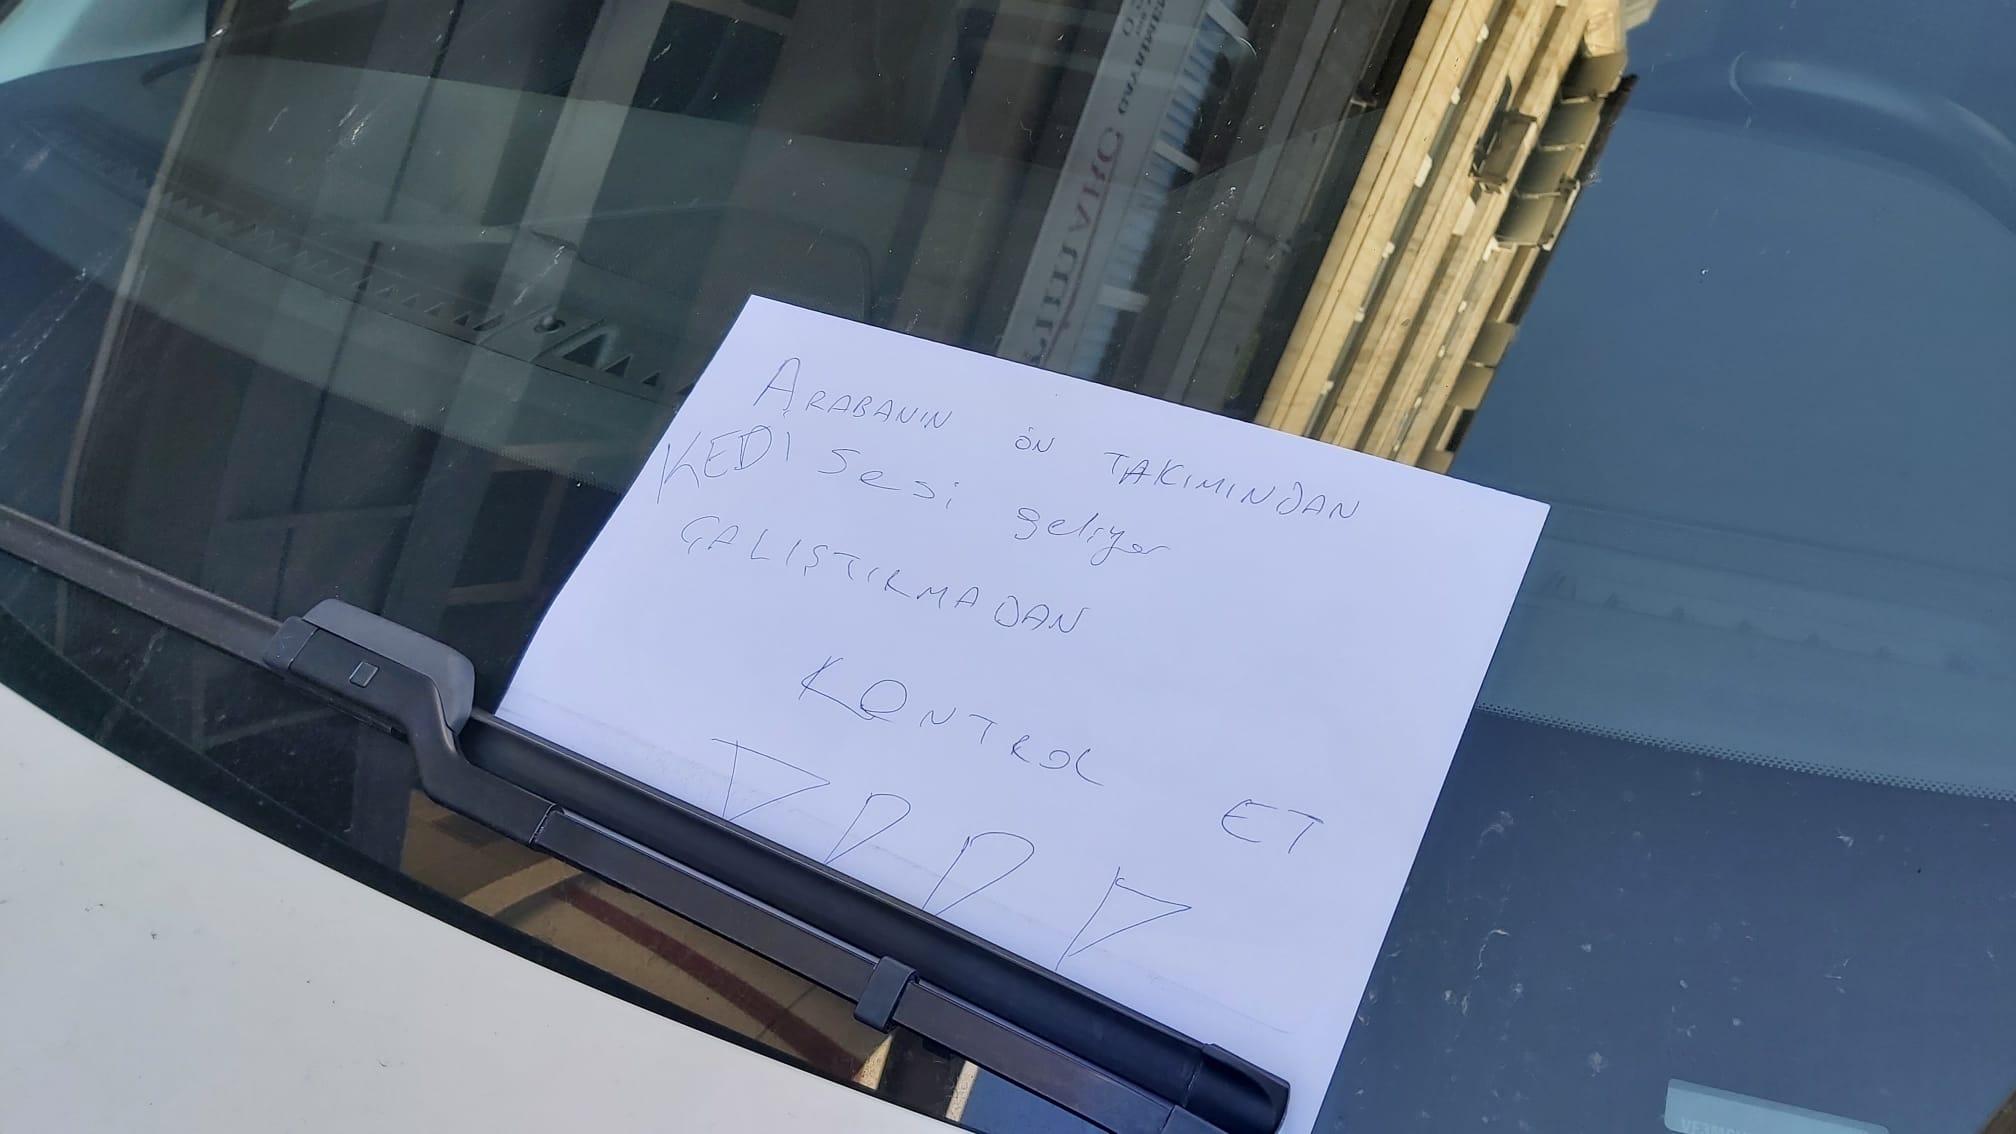 ARABANIN ÖN TAKIMINDAN
KEDİ Sesi geliyor
ÇALIŞTIRMADAN
KONTROL ET